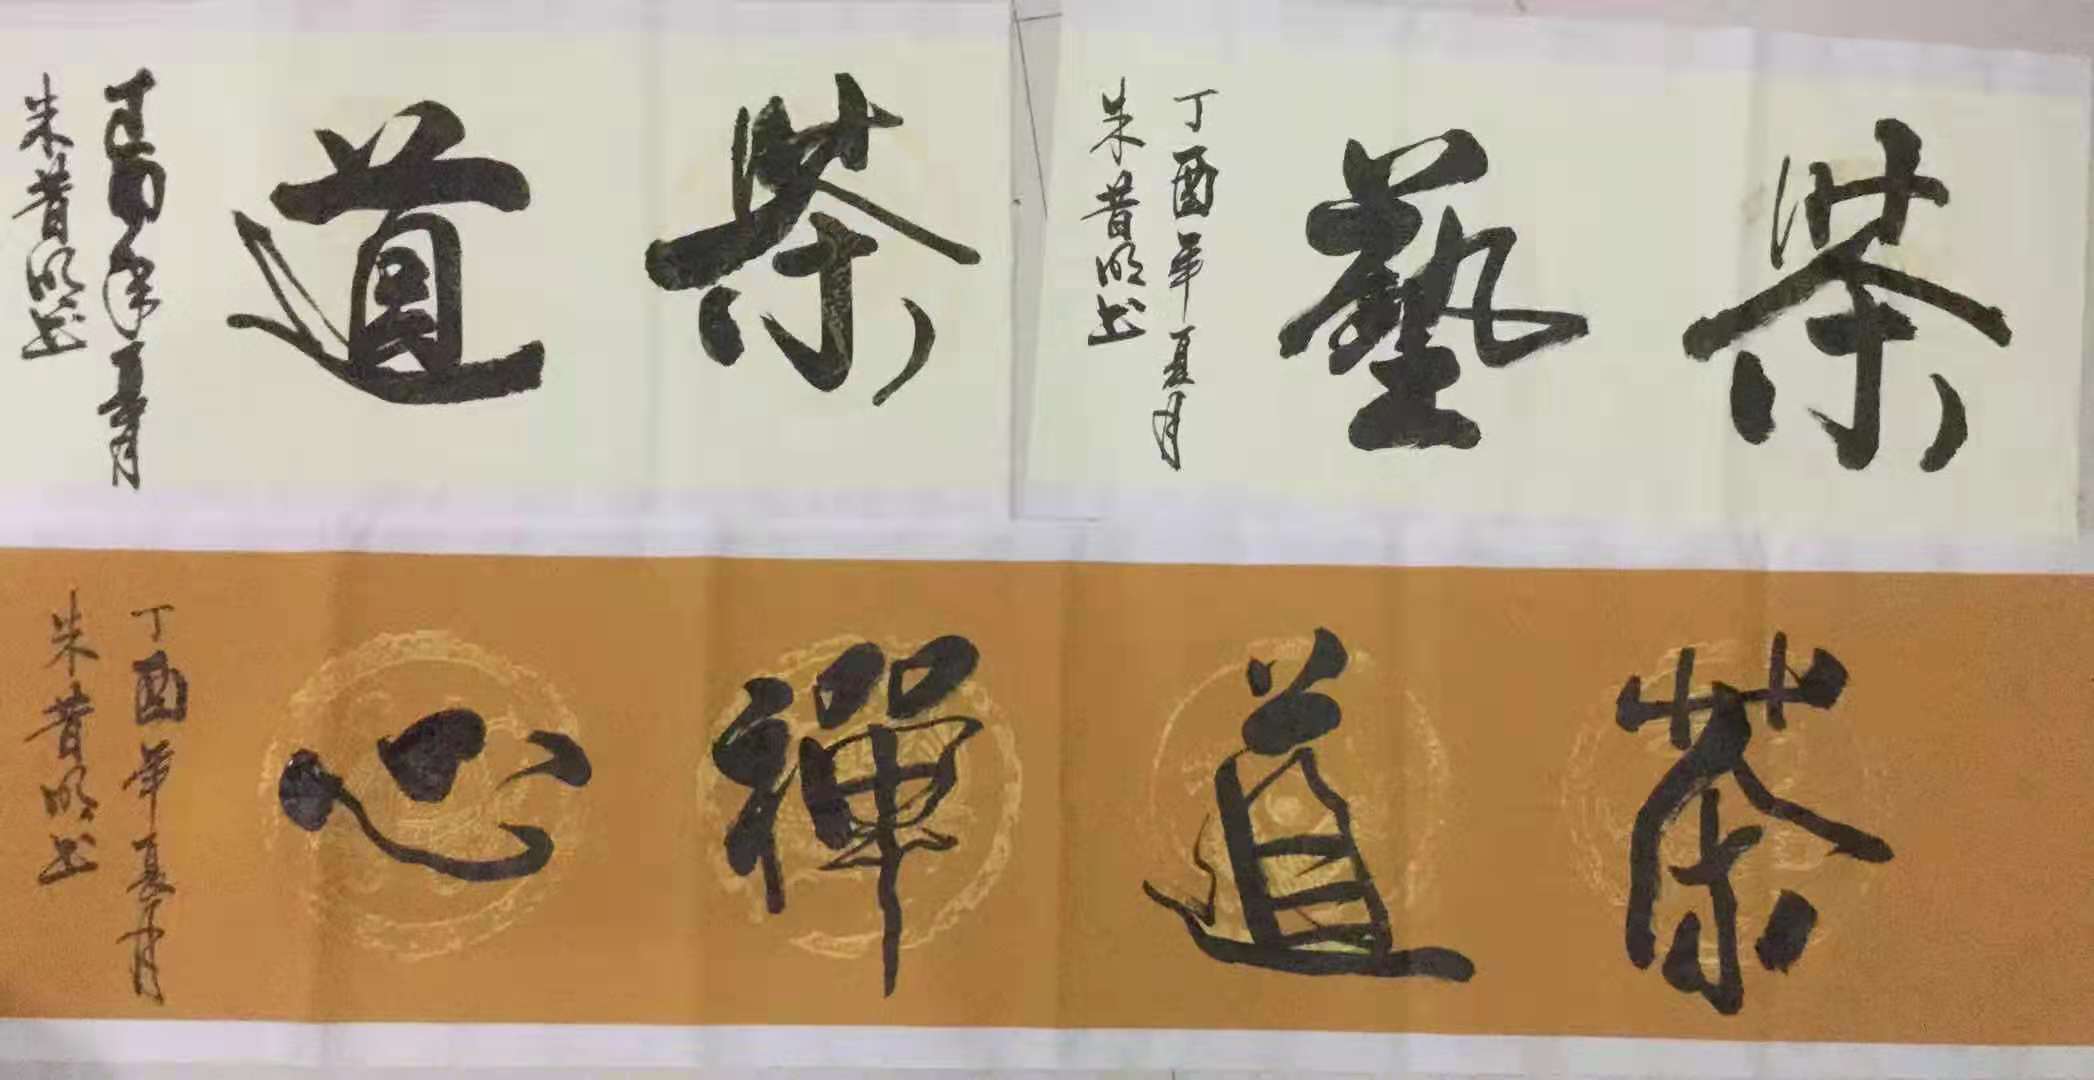 茶道
丁酉年夏月
朱昔明书
茶藝
丁酉年夏月
朱昔明书
茶道禪心
丁酉年夏月
朱昔明书